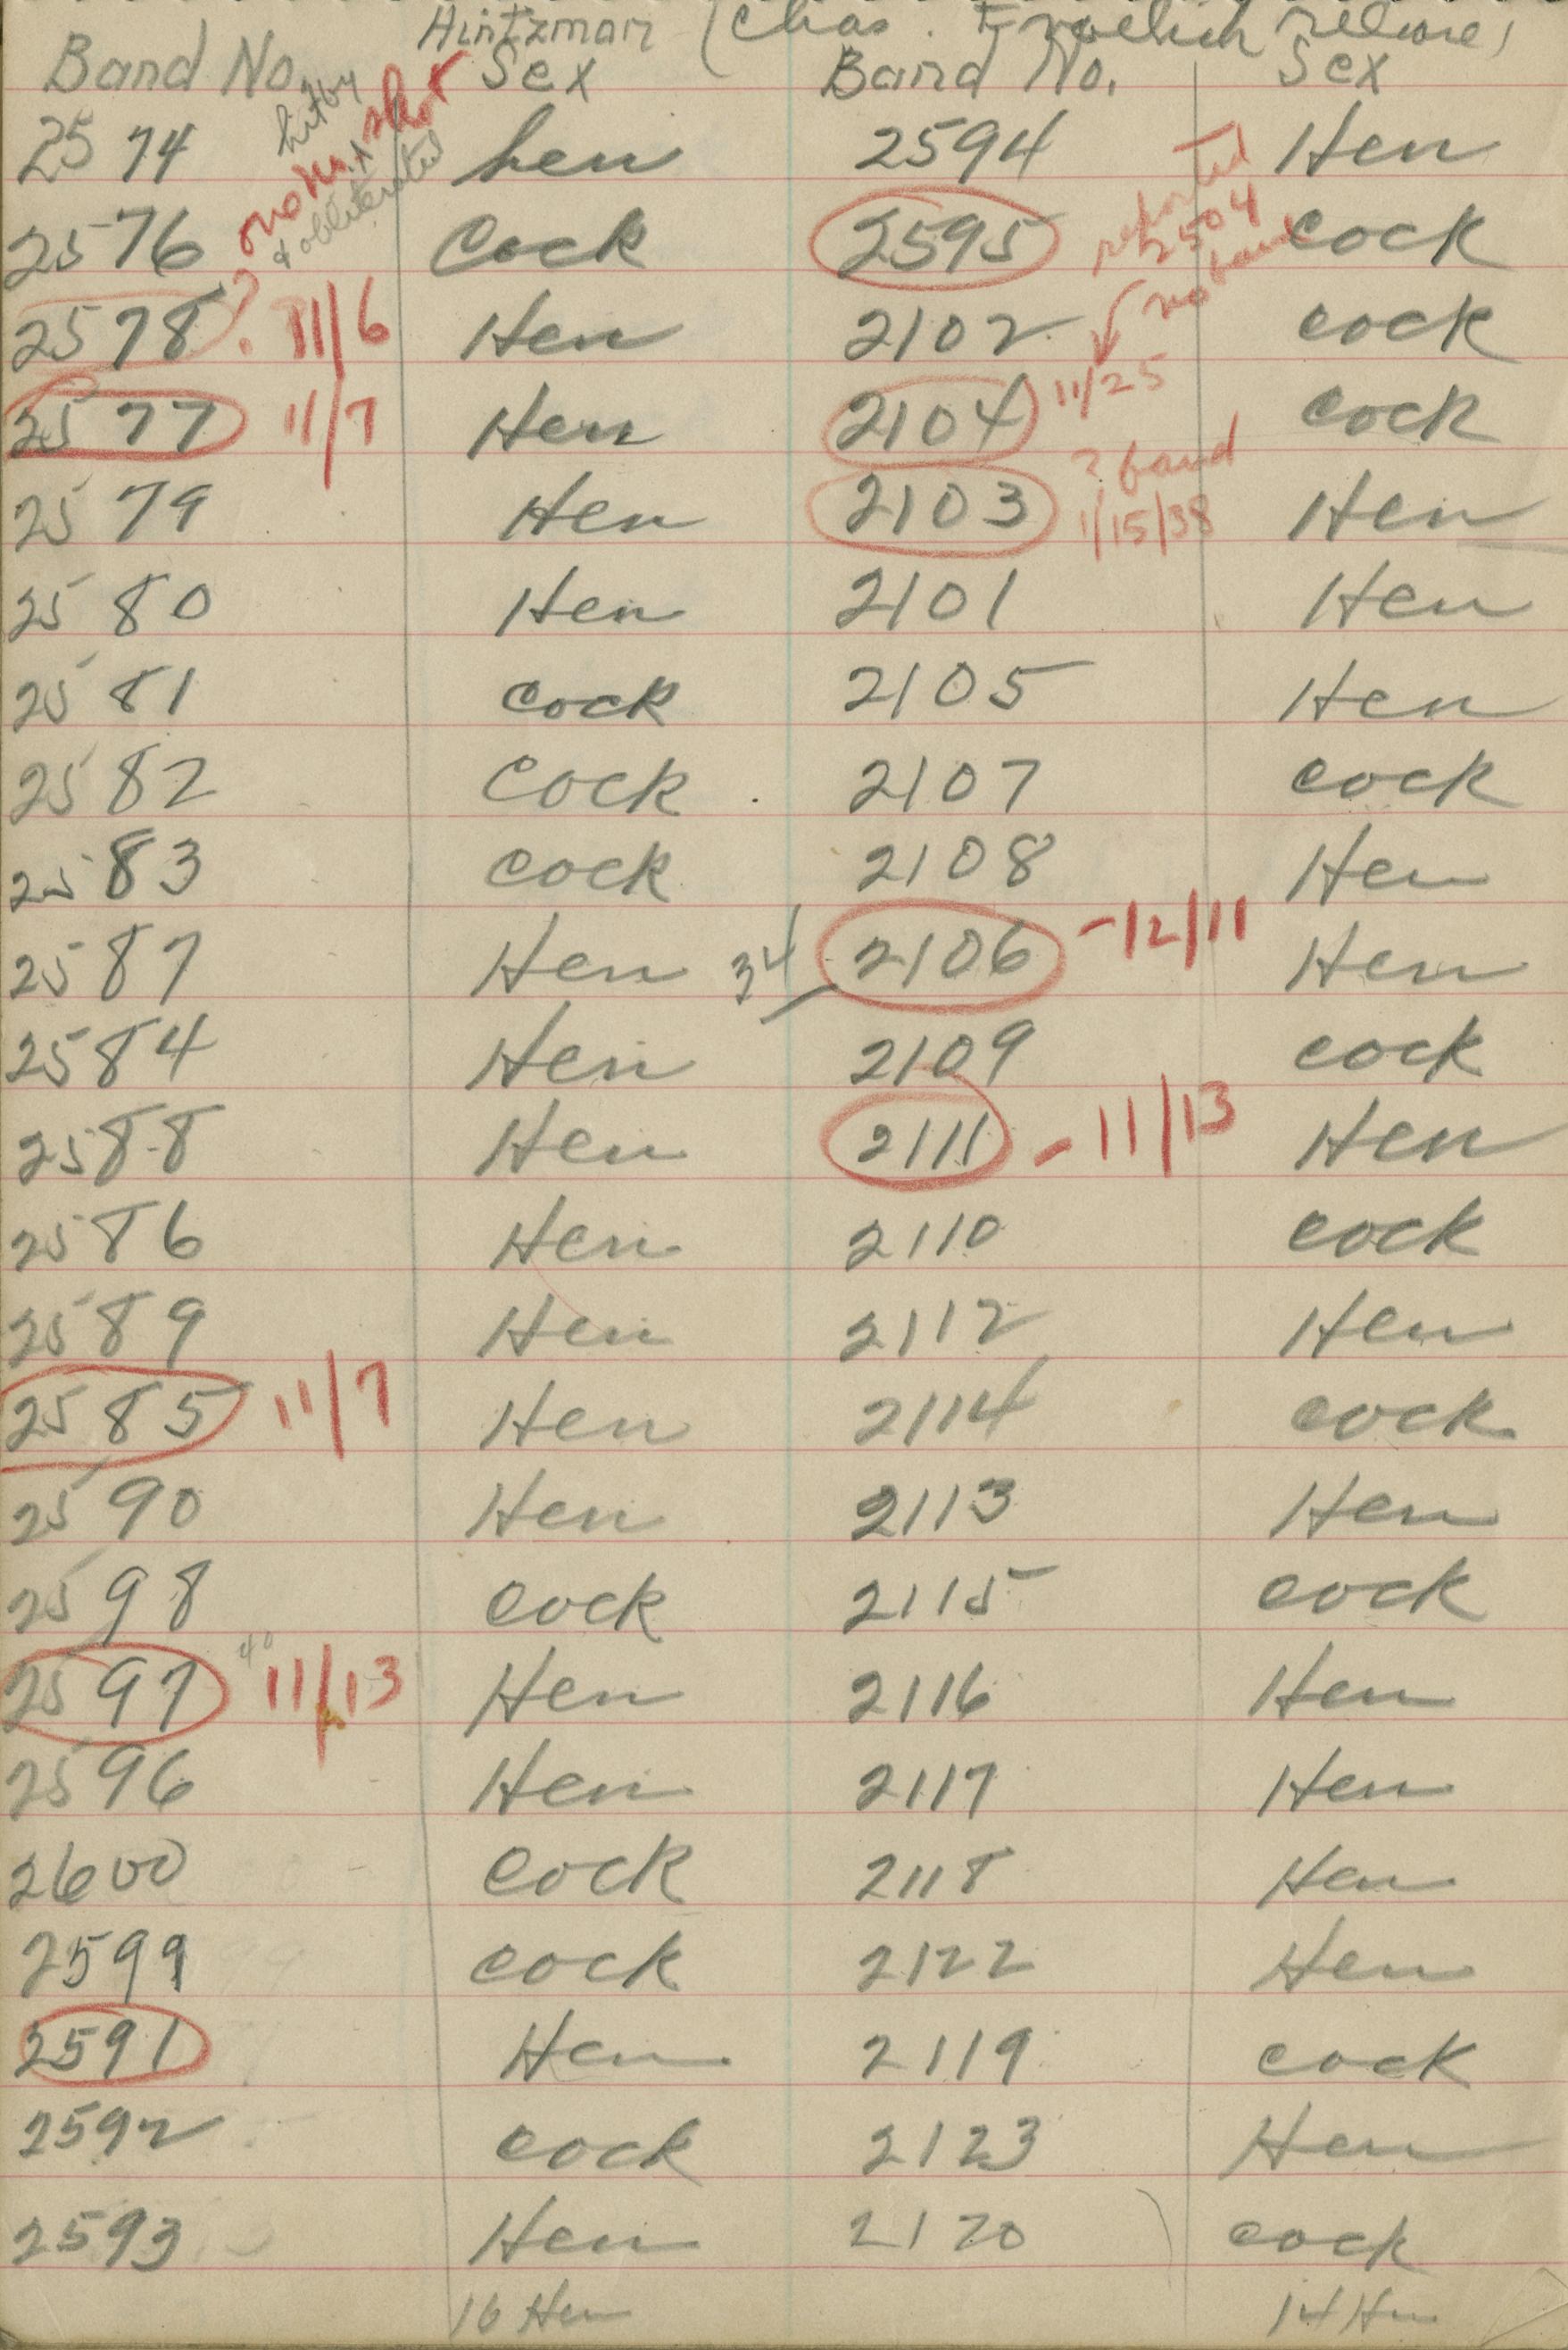 Hintzman (Chas. Froelich release)
Band No. Sex Band No. Sex
hit by shot
no no.
& obliterated
2574 hen 2594 Hen
reported
2504
no band
2576 Cock 2595 cock
2578 ? 11/6 Hen 2102 cock
2577 11/7 Hen 2104 11/25 cock
2579 Hen 2103 ? band 1/15/38 Hen
2580 Hen 2101 Hen
2581 cock 2105 Hen
2582 Cock 2107 cock
2583 cock 2108 Hen
2587 Hen 34 2106 -12/11 Hen
2584 Hen 2109 cock
2588 Hen 2111 - 11/13 Hen
2586 Hen 2110 cock
2589 Hen 2112 Hen
2585 11/7 Hen 2114 cock
2590 Hen 2113 Hen
2598 cock 2115 cock
2597 40 11/13 Hen 2116 Hen
2596 Hen 2117 Hen
2600 cock 2118 Hen
2599 cock 2122 Hen
2591 Hen 2119 cock
2592 cock 2123 Hen
2593 Hen 2120 cock
16 Hen 14 Hen